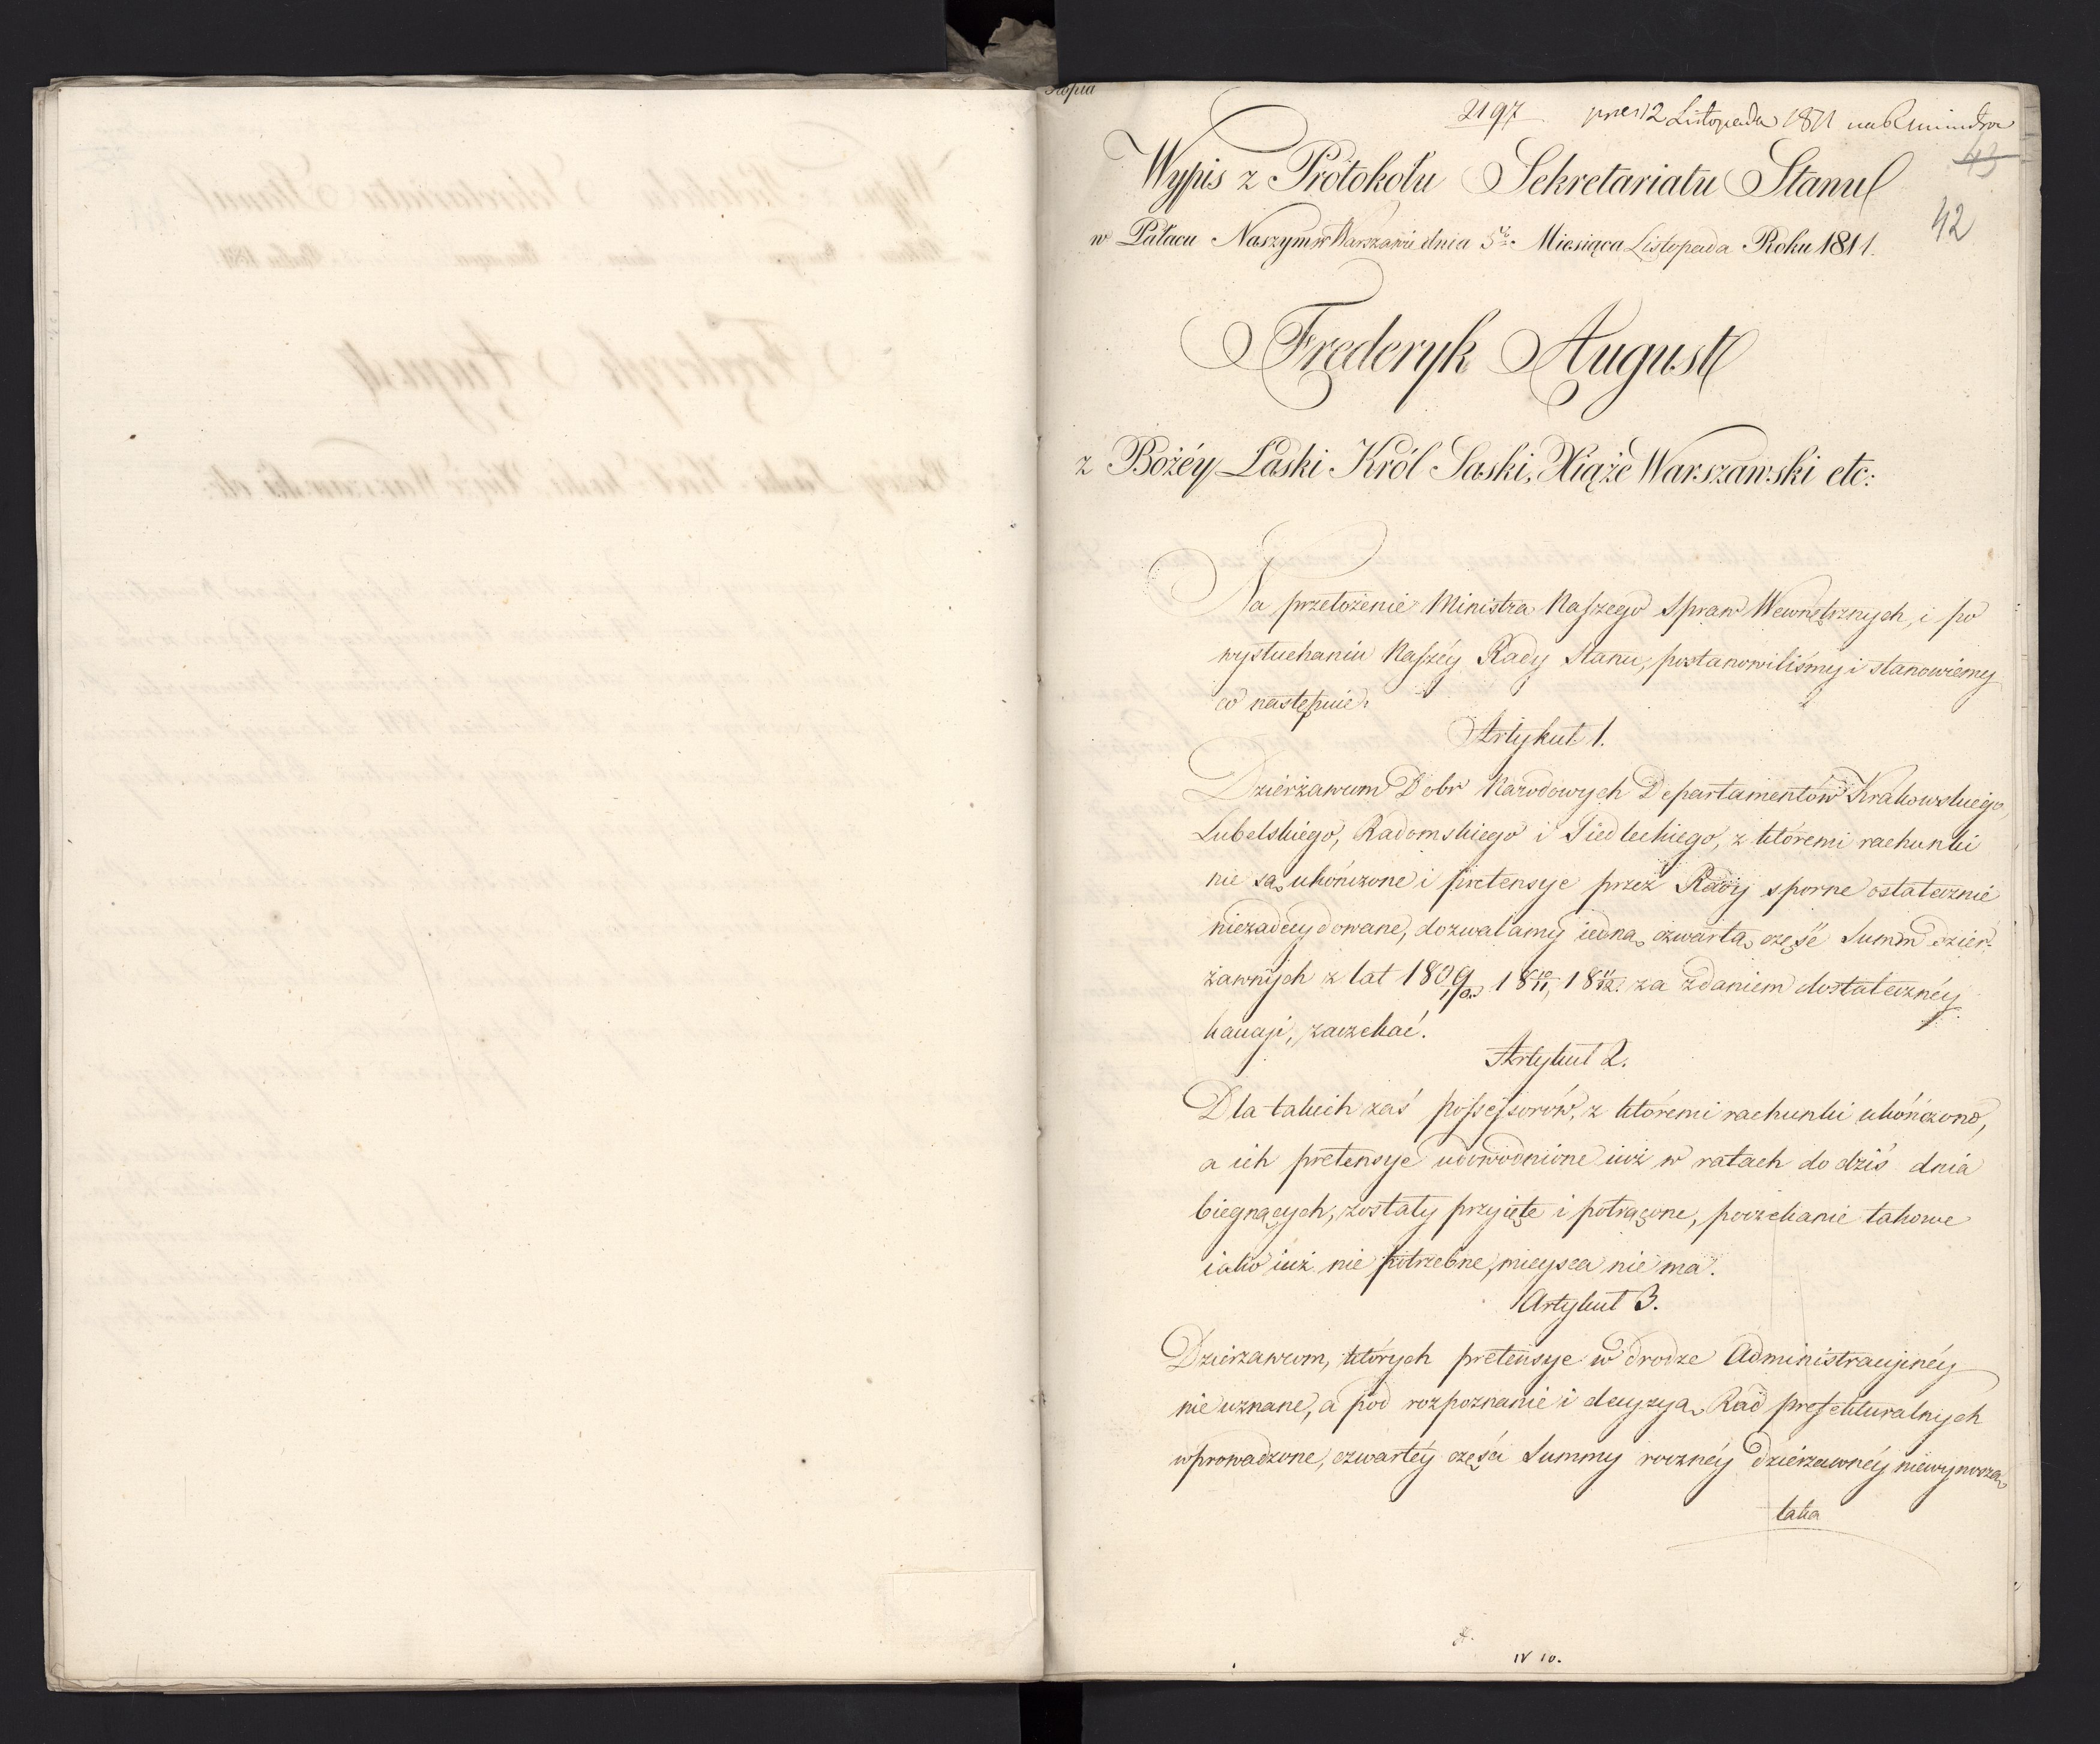 Kopia
2197 pres 12 Listopada 1811
43
Wypis z Protokołu Sekretariatu Stanu
42
w Pałacu Naszym w Warszawie dnia 5go Miesiąca Listopada Roku 1811.
Frederyk August
z Bożéy Łaski Król Saski, Xiąże Warszawski etc:
Na przełożenie Ministra Naszego Spraw Wewnętrznych, i po
wysłuchaniu Naszéy Rady Stanu, postanowiliśmy i stanowiemy
co następuie.
Artykuł 1.
Dzierżawcom Dobr Narodowych Departamentów Krakowskiego,
Lubelskiego, Radomskiego i Siedleckiego, z któremi rachunki
nie są ukończone i pretensye przez Rady sporne ostatecznie
niezadecydowane, dozwalamy iedną czwartą część Summ dzier-
żawnych z lat 1809/10. 18 10/11, 18 11/12. za zdaniem dostatecznéy
kaucyi, zaczekać.
Artykuł 2.
Dla takich zaś possessorów, z któremi rachunki ukończono,
a ich pretensye udowodnione iuż w ratach do dziś dnia
biegnących, zostały przyięte i potrącone, poczekanie takowe
iako iuż nie potrzebne, mieysca nie ma.
Artykuł 3.
Dzierżawcom, których pretensye w drodze Administracyinéy
nie uznane, a pod rozpoznanie i decyzyą Rad prefekturalnych
wprowadzone, czwartéy części Summy rocznéy dzierżawnéy niewynoszą
taka
IV 10.